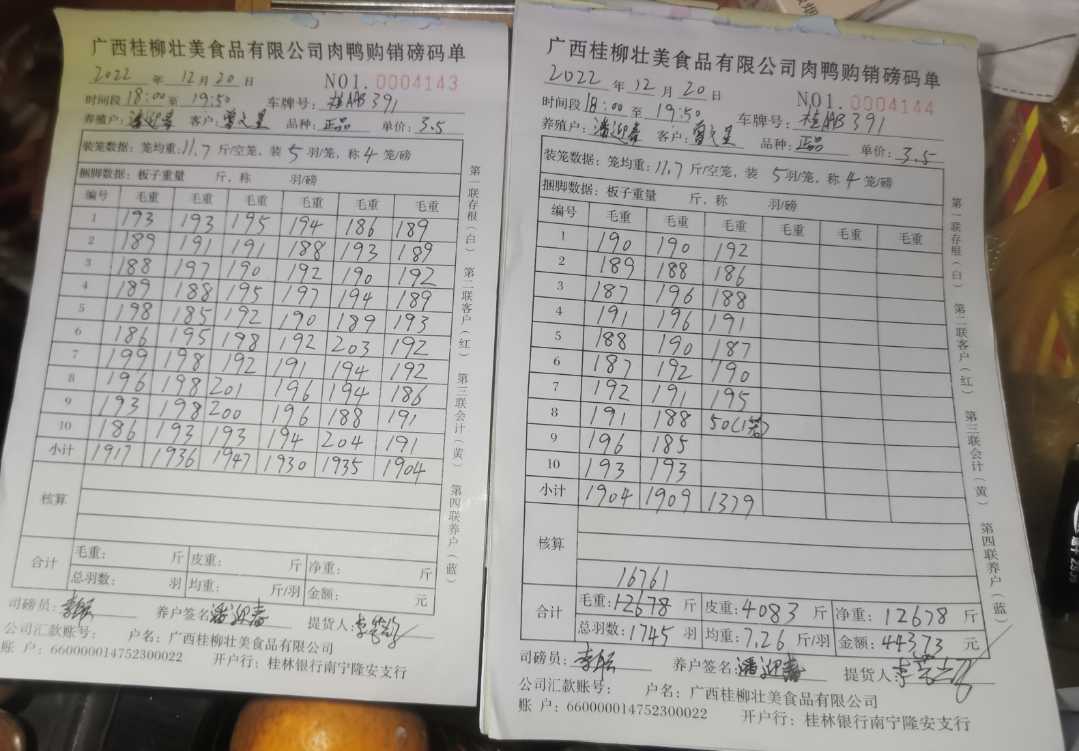 广西桂柳壮美食品有限公司肉鸭购销磅码单
2022 年 12 月 20 日 NO1. 0004143
时间段 18:00 至 19:50 车牌号: 桂AB391
养殖户: 潘迎春 客户: 品种: 正品 单价: 3.5
装笼数据: 笼均重: 11.7 斤/空笼, 装 5 羽/笼, 称 4 笼/磅
捆脚数据: 板子重量 斤, 称 羽/磅
编号 毛重 毛重 毛重 毛重 毛重 毛重
1 193 193 195 194 186 189
2 189 191 191 188 193 189
3 188 197 190 192 190 192
4 189 188 195 197 194 189
5 198 185 192 190 189 193
6 186 195 198 192 203 192
7 199 198 192 191 194 192
8 196 198 201 196 194 186
9 193 198 200 196 188 191
10 186 193 193 94 204 191
小计 1917 1936 1947 1930 1935 1904
核算
合计 毛重: 斤 皮重: 斤 净重: 斤
总羽数: 羽 均重: 斤/羽 金额: 元
司磅员: 养户签名: 潘迎春 提货人:
公司汇款账号: 户名: 广西桂柳壮美食品有限公司
账 户: 660000014752300022 开户行: 桂林银行南宁隆安支行
第一联存根(白) 第二联客户(红) 第三联会计(黄) 第四联养户(蓝)
广西桂柳壮美食品有限公司肉鸭购销磅码单
2022 年 12 月 20 日 NO1. 0004144
时间段 18:00 至 19:50 车牌号: 桂AB391
养殖户: 潘迎春 客户: 品种: 正品 单价: 3.5
装笼数据: 笼均重: 11.7 斤/空笼, 装 5 羽/笼, 称 4 笼/磅
捆脚数据: 板子重量 斤, 称 羽/磅
编号 毛重 毛重 毛重 毛重 毛重 毛重
1 190 190 192
2 189 188 186
3 187 196 188
4 191 196 191
5 188 190 187
6 187 192 190
7 192 191 195
8 191 188 50(1笼)
9 196 185
10 193 193
小计 1904 1909 1379
核算
16761
合计 毛重: 12678 斤 皮重: 4083 斤 净重: 12678 斤
总羽数: 1745 羽 均重: 7.26 斤/羽 金额: 44373 元
司磅员: 养户签名: 潘迎春 提货人:
公司汇款账号: 户名: 广西桂柳壮美食品有限公司
账 户: 660000014752300022 开户行: 桂林银行南宁隆安支行
第一联存根(白) 第二联客户(红) 第三联会计(黄) 第四联养户(蓝)